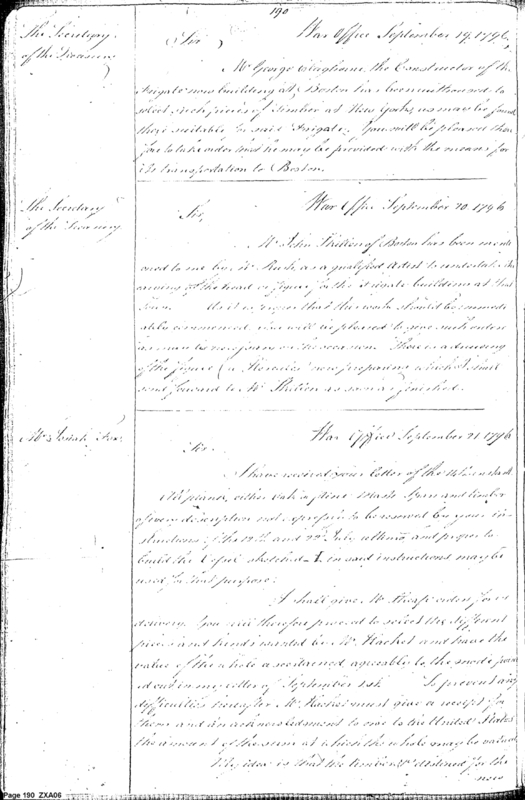 190
The Secretary
of the Treasury
Sir
War Office September 19. 1796,
Mr George Claghorne the Constructor of the
Frigate now building at Boston has been authorised to
select such pieces of timber at New York, as may be found
there suitable for said Frigate, You will be pleased there
fore to take order that he may be provided with the means for
its transportation to Boston.
The Secretary
of the Treasury
Sir,
War Office September 20. 1796
Mr John Skillen of Boston has been menti
oned to me by Mr Rush as a qualified Artist to undertake the
carving of the head or figure for the Frigate building at that
Town. As it is proper that this work should be immedi
ately commenced you will be pleased to give such orders
as may be necessary on the occasion. There is a drawing
of the figure (a Hercules) now preparing which I shall
send forward to Mr Skillen as soon as finished.
Mr Josiah Fox
Sir.
War Office September 21 1796
I have received your letter of the
All plank, either oak or pine Masts Spars and timber
of every description not expressly to be reserved by your in
structions of the 12th and 22d July ultimo and proper to
build the Vessel sketched I. in said instructions may be
used for that purpose.
I shall give Mr Sharp orders for its
delivery. You will therefore proceed to select the different
pieces and kinds wanted by Mr Hacket and have the
value of the whole ascertained agreeably to the mode point
ed out in my letter of September 1st. To prevent any
difficulties hereafter Mr Hacket must give a receipt for
them and an acknowledgment to owe to the United States
the amount of the sum at which the whole may be valued
My idea is that the timber &c destined for the